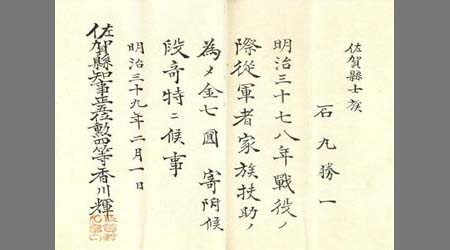 佐賀縣士族
石丸勝一
明治三十七八年戰役ノ
際從軍者家族扶助ノ
為メ金七圓寄附候
段奇特ニ候事
明治三十九年二月一日
佐賀縣知事正五位勲四等香川輝